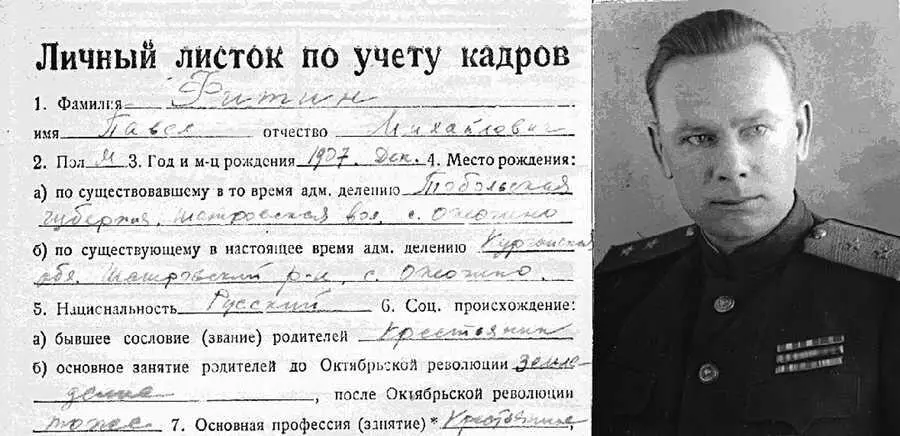 Личный листок по учету кадров
1. Фамилия Фитин
имя Павел отчество Михайлович
2. Пол М 3. Год и м-ц рождения 1907. Дек. 4. Место рождения:
а) по существовавшему в то время адм. делению Тобольская
губерния, Шатровская вол, с. Ожогино
б) по существующему в настоящее время адм. делению Курганская
обл. Шатровский р-н, с. Ожогино.
5. Национальность Русский 6. Соц. происхождение:
а) бывшее сословие (звание) родителей Крестьянин
б) основное занятие родителей до Октябрьской революции Земле-
делие, после Октябрьской революции
тоже 7. Основная профессия (занятие) *